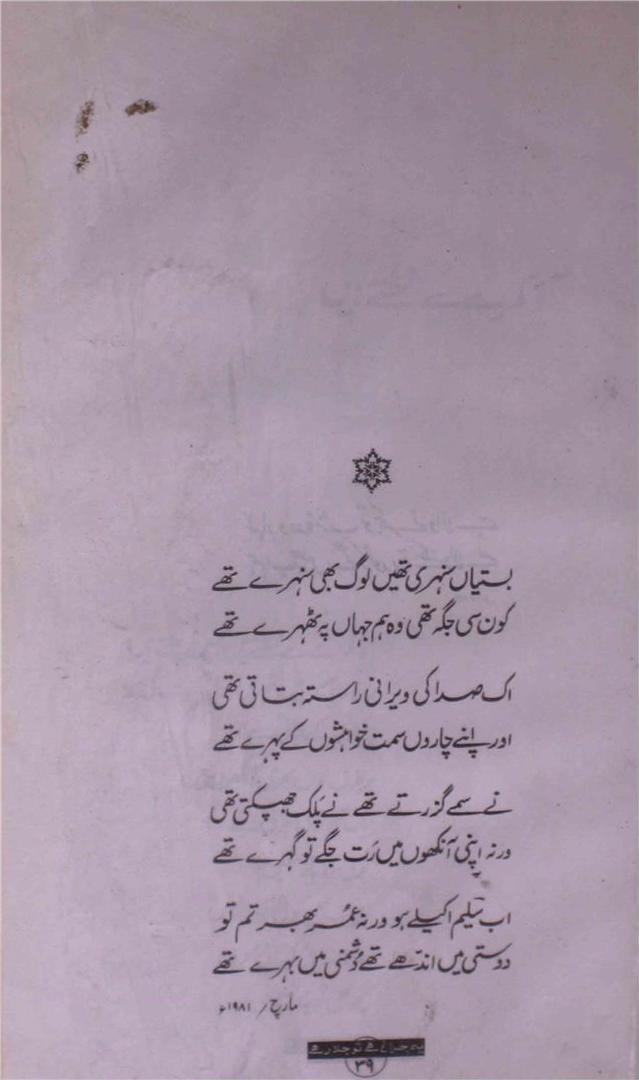 بستیاں سنہری تھیں لوگ بھی سنہرے تھے
کون سی جگہ تھی وہ ہم جہاں پہ ٹھہرے تھے
اک صدا کی ویرانی راستہ بتاتی تھی
اور اپنے چاروں سمت خواہشوں کے پہرے تھے
نے سمے گزرتے تھے نے پلک جھپکتی تھی
ورنہ اپنی آنکھوں میں رَت جگے تو گہرے تھے
اب سلیم اکیلے ہو ورنہ عمر بھر تم تو
دوستی میں اندھے تھے دُشمنی میں بہرے تھے
مارچ / ۱۹۸۱ء
یہ چراغ ہے تو جلا رہے
۳۹